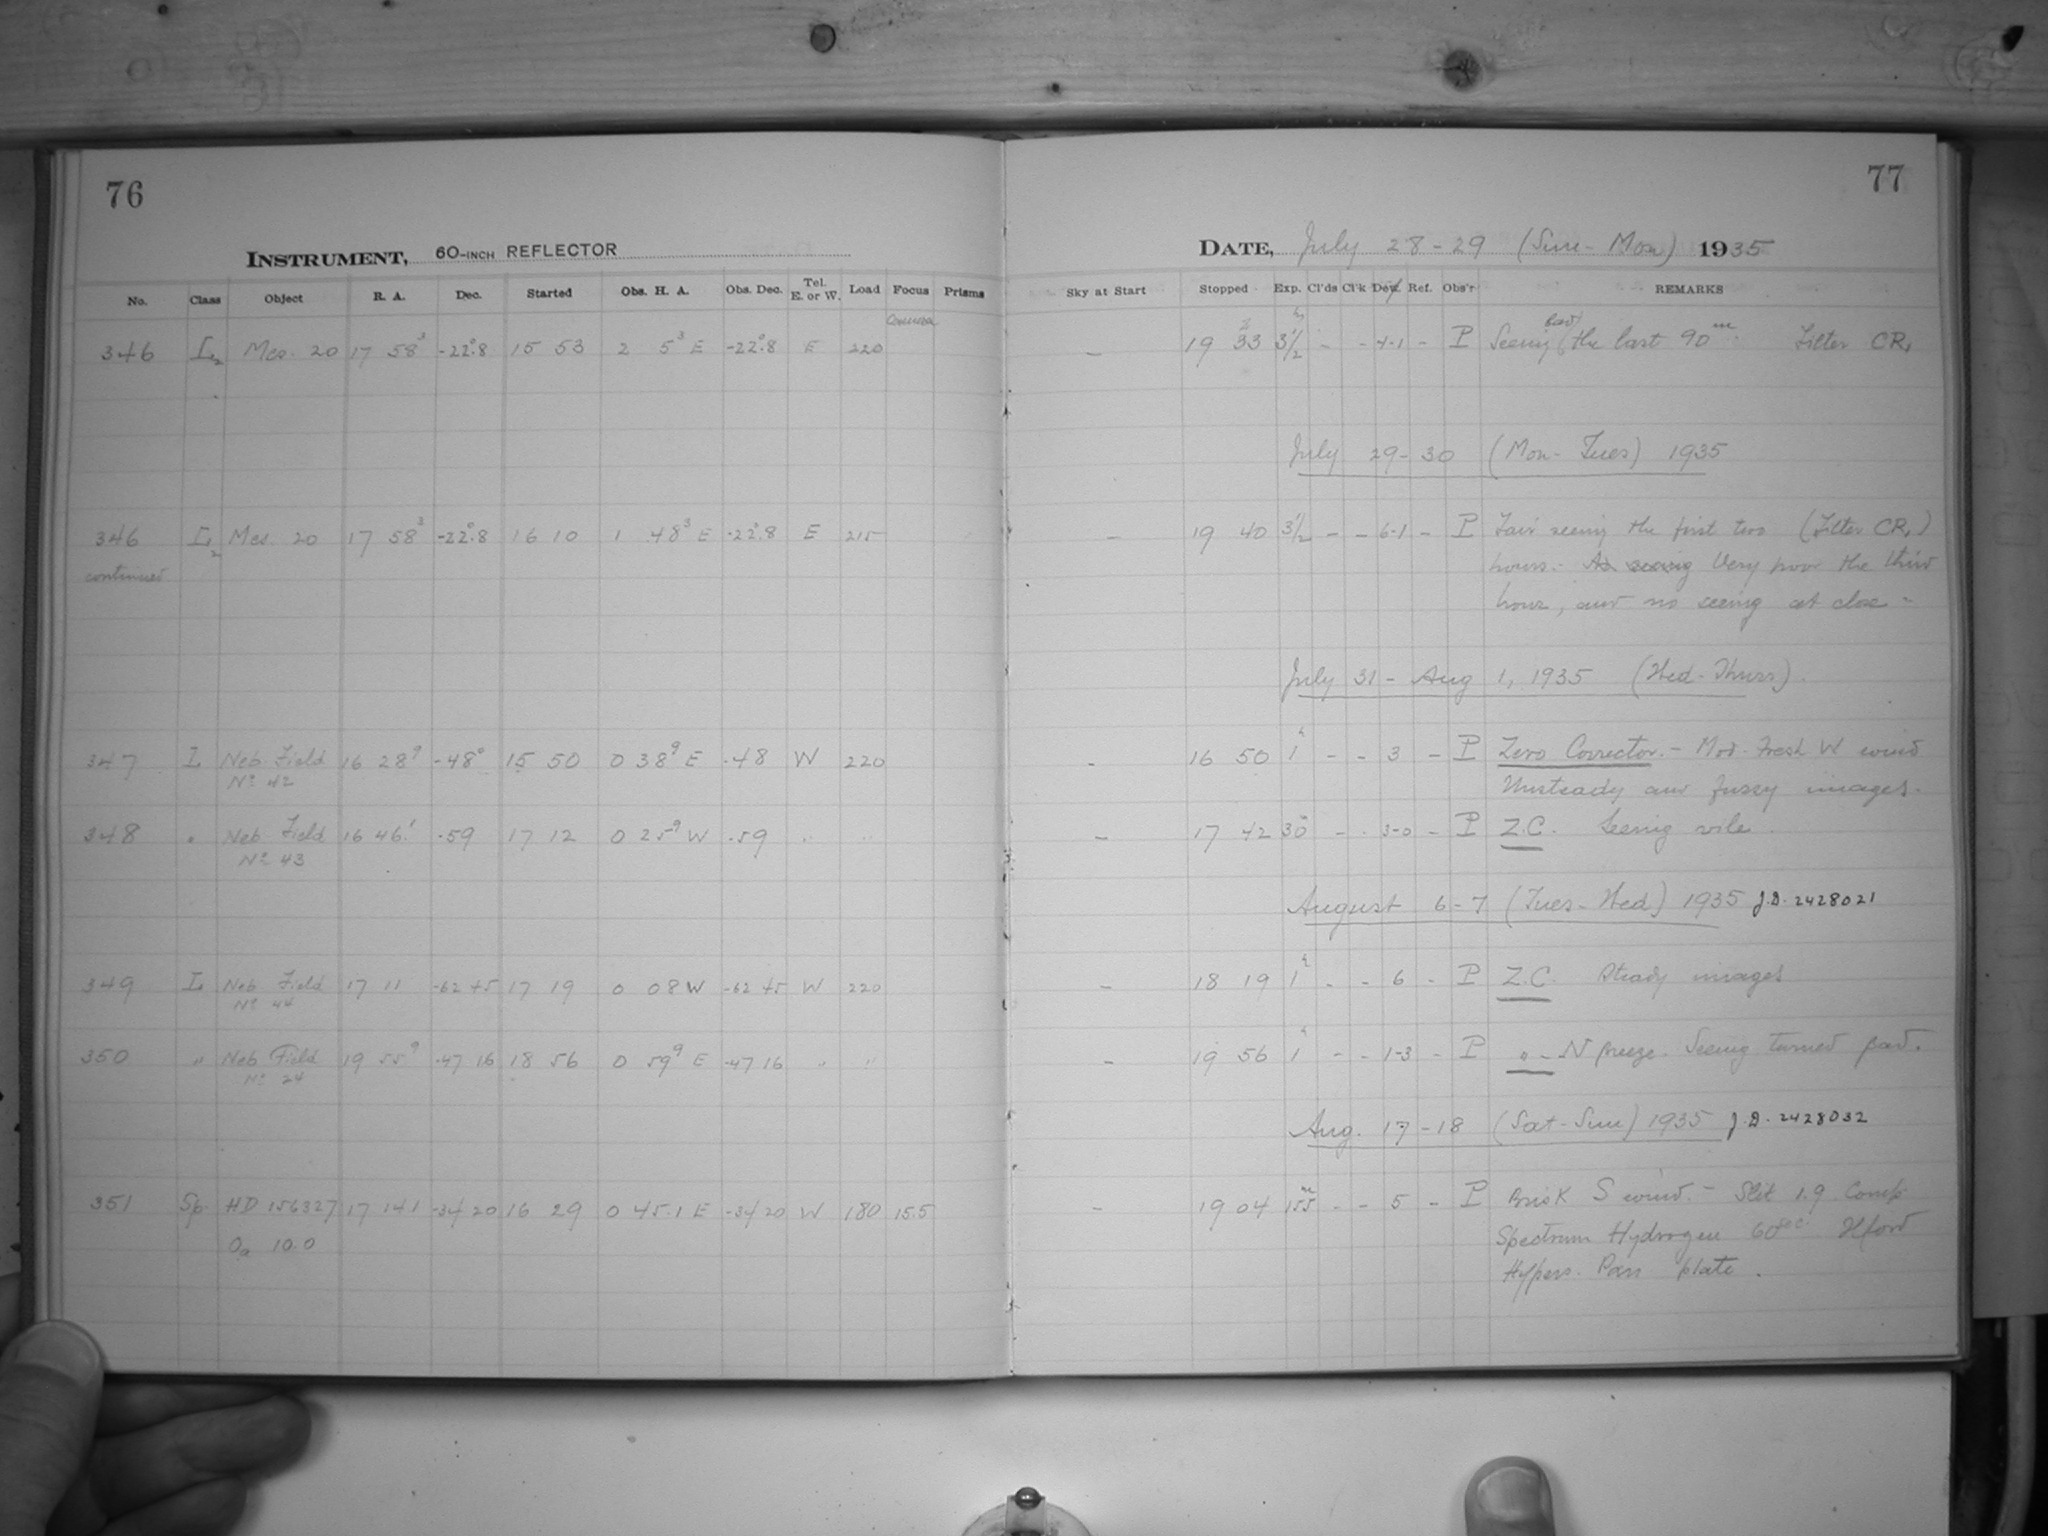 76
INSTRUMENT, 60-INCH REFLECTOR
No. Class Object R. A. Dec. Started Obs. H. A. Obs. Dec. Tel. E. or W. Load Focus Prisms
346 L2 Mes. 20 17 58³ -22°.8 15 53 2 5³ E -22°.8 E 220
346 L2 Mes. 20 17 58³ -22°.8 16 10 1 48³ E -22°.8 E 215
continued
347 L Neb Field 16 28⁹ -48° 15 50 0 38⁹ E -48 W 220
Nº 42
348 " Neb Field 16 46.¹ -59 17 12 0 25⁹ W -59 " "
Nº 43
349 L Neb Field 17 11 -62 45 17 19 0 08 W -62 45 W 220
Nº 44
350 " Neb Field 19 55⁹ -47 16 18 56 0 59⁹ E -47 16 " "
Nº 24
351 Sp. HD 156327 17 14.1 -34 20 16 29 0 45.1 E -34 20 W 180 15.5
Oa 10.0
77
DATE, July 28-29 (Sun-Mon) 1935
Sky at Start Stopped Exp. Cl'ds Cl'k Dew. Ref. Obs'r REMARKS
– 19 33 3½ʰ – – 4-1 – P Seeing bad the last 90ᵐ. Filter CR,
July 29-30 (Mon-Tues) 1935
– 19 40 3½ – – 6-1 – P Fair seeing the first two (Filter CR,)
hours. – As seeing Very poor the third
hour, and no seeing at close –
July 31 - Aug 1, 1935 (Wed-Thurs).
– 16 50 1ʰ – – 3 – P Zero Corrector. – Mod. Fresh W wind
Unsteady and fuzzy images.
– 17 42 30ᵐ – – 3-0 – P Z.C. Seeing vile.
August 6-7 (Tues-Wed) 1935 J.D. 2428021
– 18 19 1ʰ – – 6 – P Z.C. Steady images
– 19 56 1ʰ – – 1-3 – P " – N breeze. Seeing turned bad.
Aug. 17-18 (Sat-Sun) 1935 J.D. 2428032
– 19 04 155ᵐ – – 5 – P Brisk S wind. – Slit 1.9 Comp.
Spectrum Hydrogen 60ˢᵉᶜ. Ilford
Hypers. Pan plate.